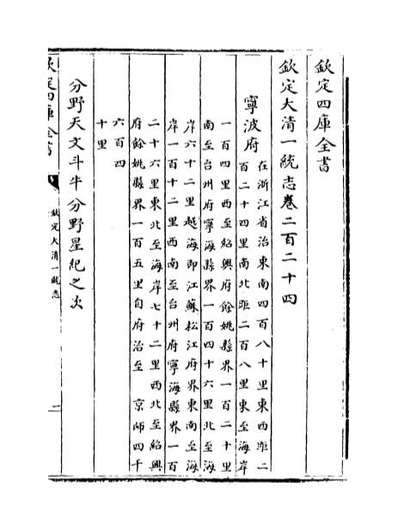 欽定四庫全書
欽定大清一統志卷二百二十四
寧波府
在浙江省治東南四百八十里東西距二
百二十四里南北距二百八里東至海岸
一百四里西至紹興府餘姚縣界一百二十里
南至台州府寧海縣界一百四十六里北至海
岸六十二里越海即江蘇松江府界東南至海
岸一百十二里西南至台州府寧海縣界一百
二十六里東北至海岸七十二里西北至紹興
府餘姚縣界一百五里自府治至 京師四千
六百四
十里
分野天文斗牛分野星紀之次
欽定四庫全書
欽定大清一統志
一